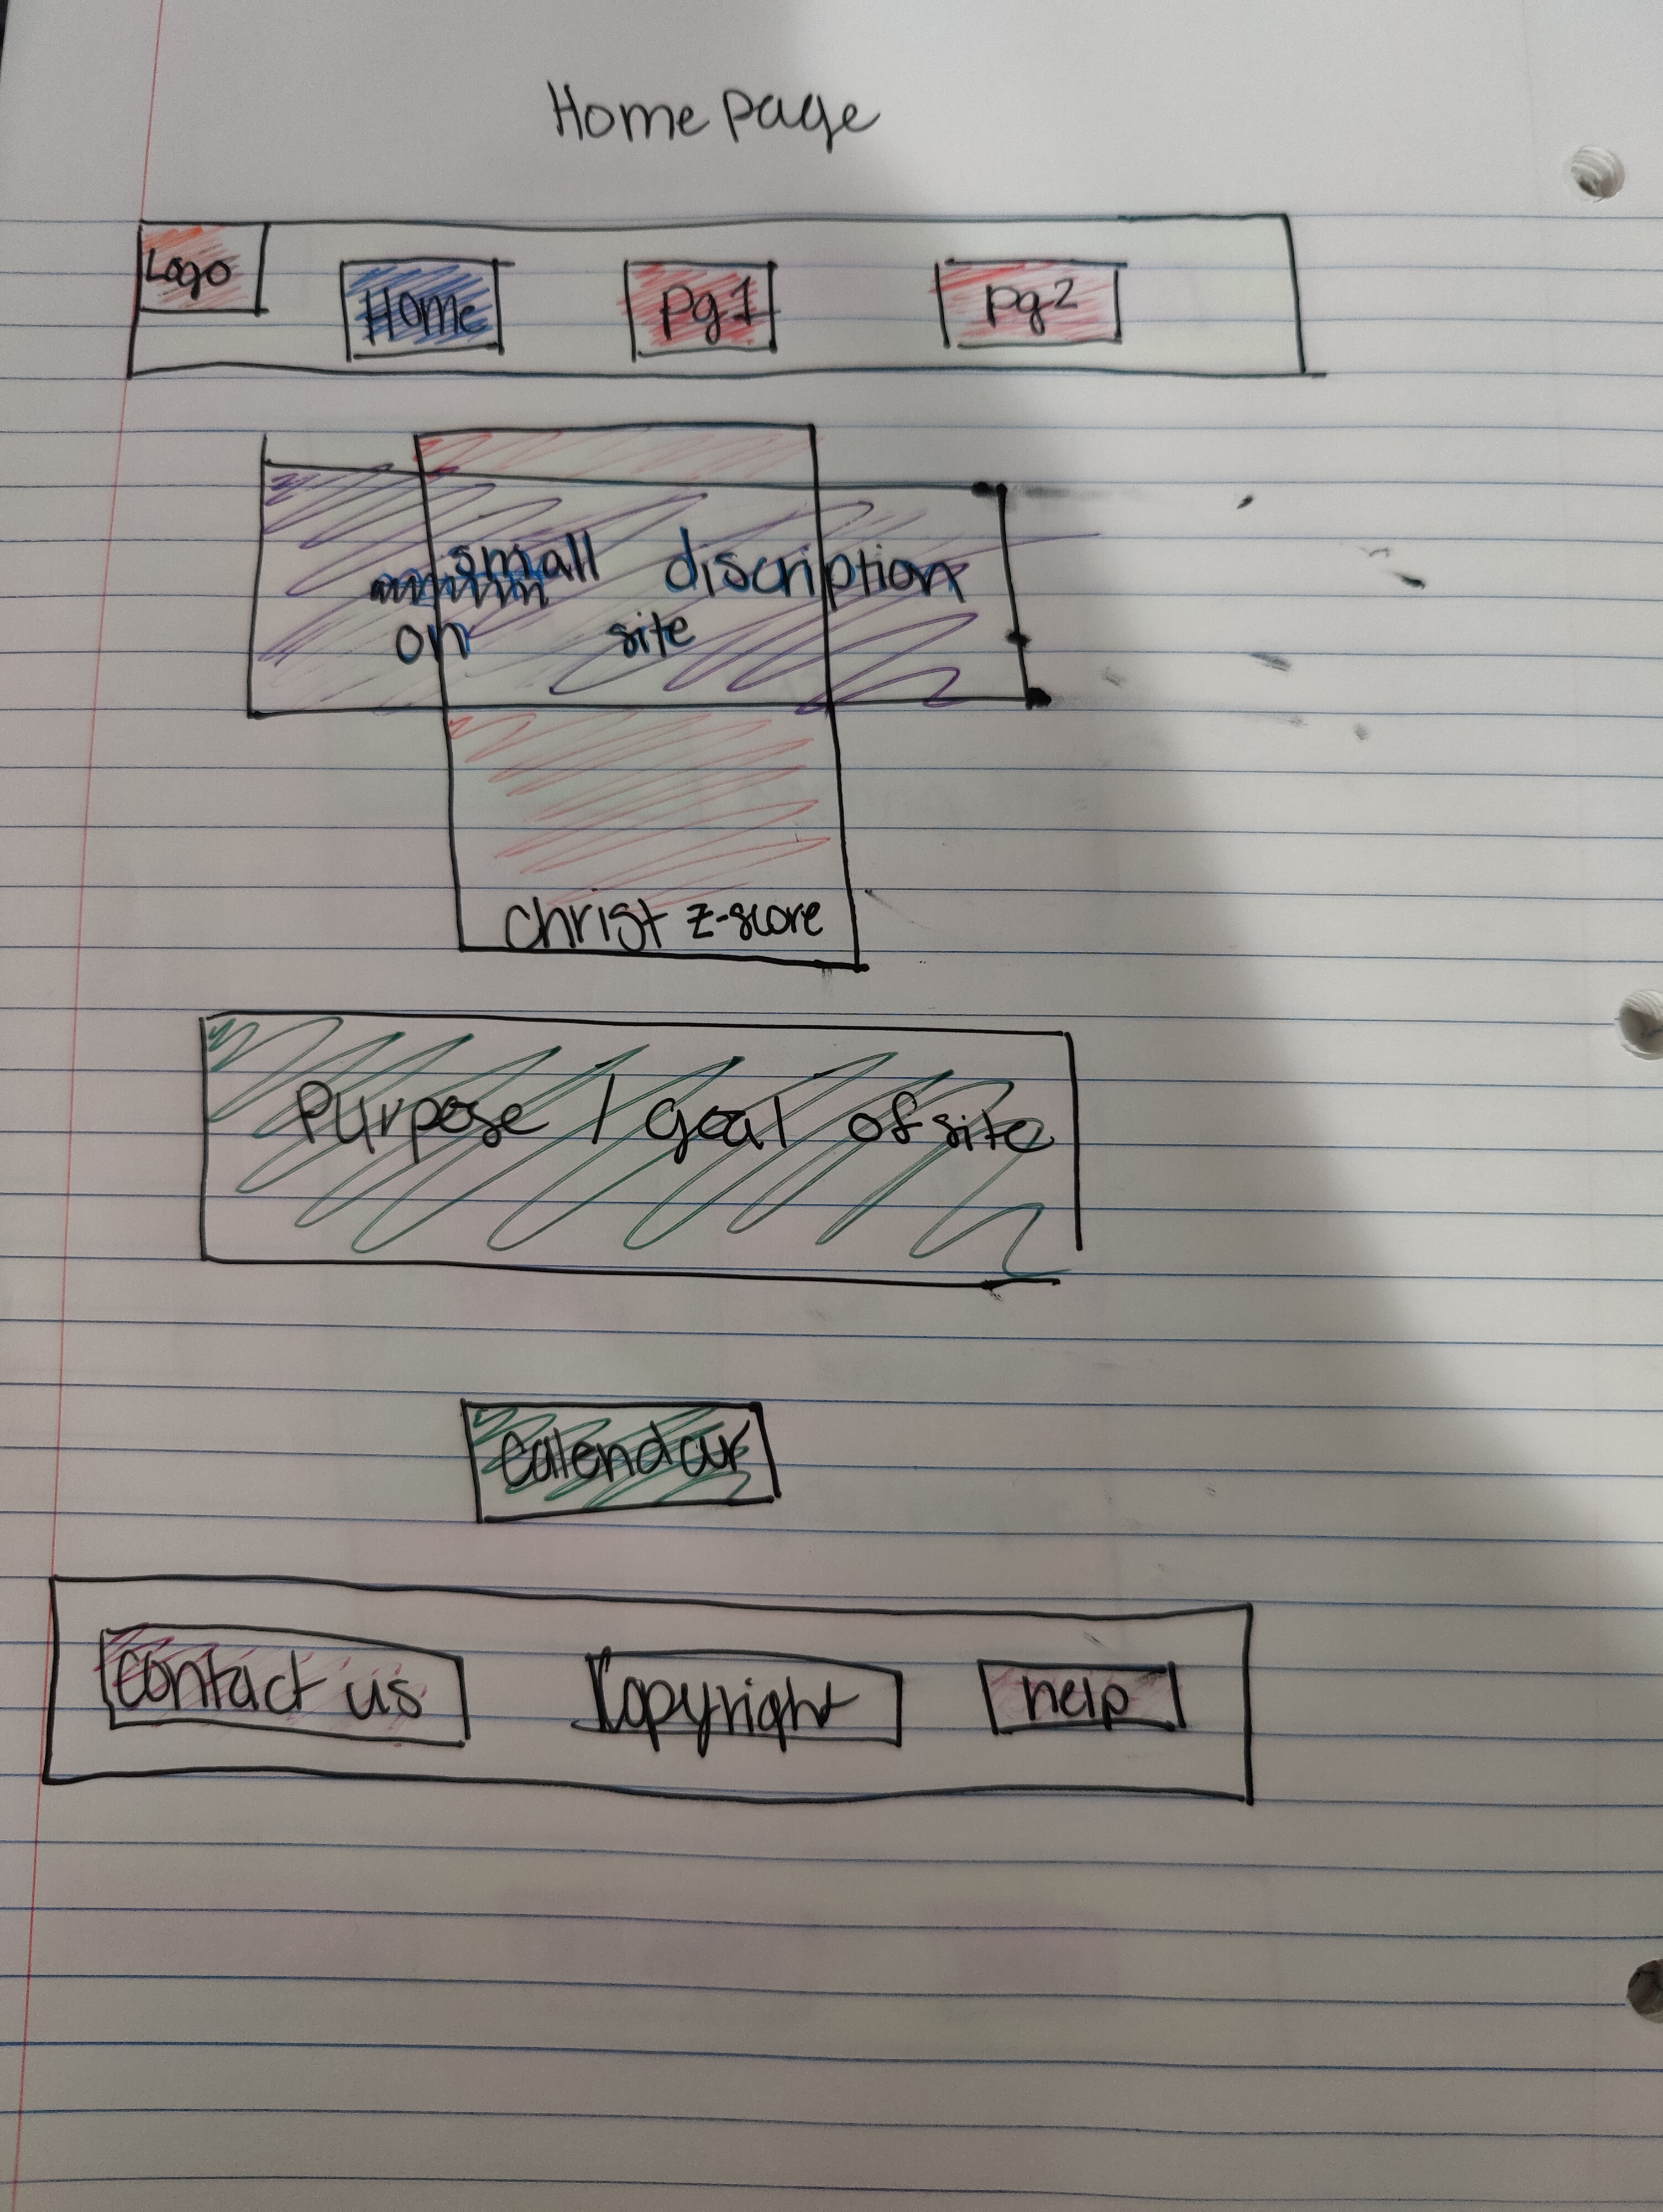 Home page
Logo
Home
pg1
pg2
small discription
on site
christ z-score
Purpose / goal of site
calendar
contact us
Copyright
help